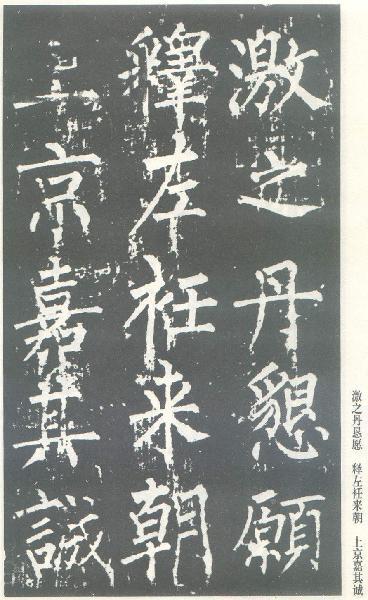 激之丹懇願
釋左衽来朝
上京嘉其誠
激之丹恳愿　释左衽来朝　上京嘉其诚